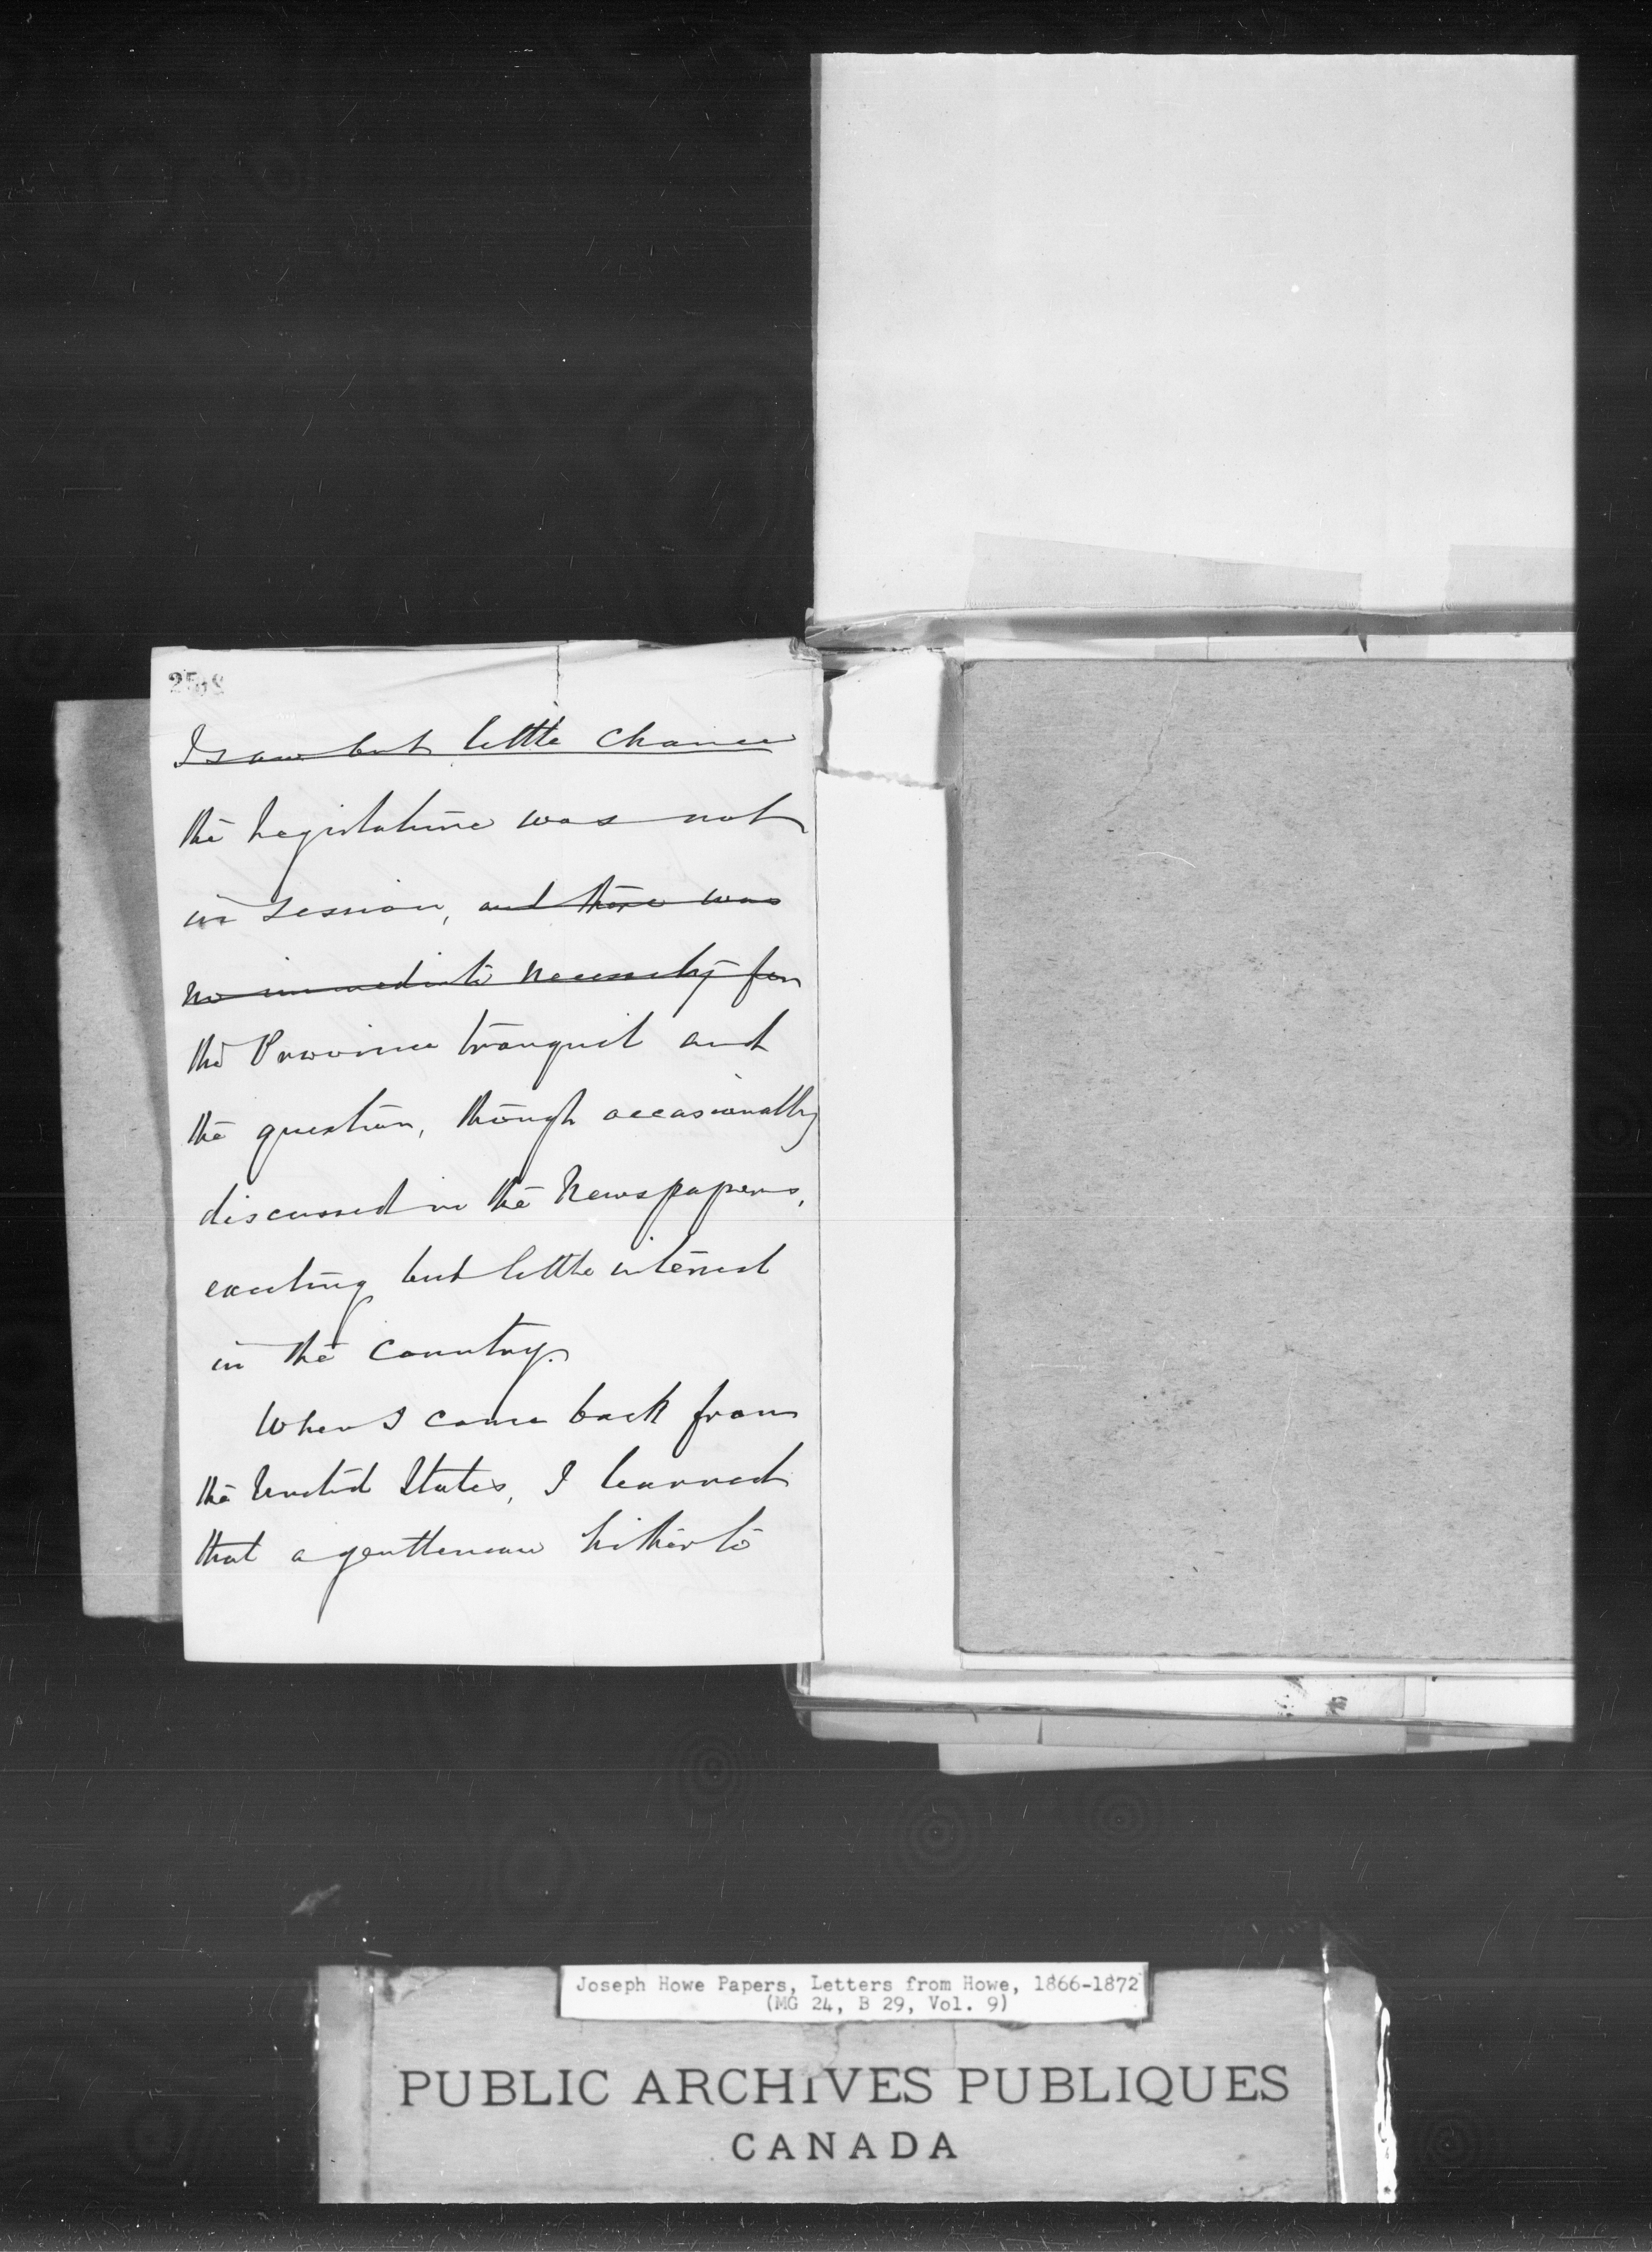 I saw but little chance
the Legislature was not
in session, and there was
no immediate necessity for
the Province tranquil and
the question, though occasionally
discussed in the Newspapers,
exciting but little interest
in the Country.
When I came back from
the United States, I learned
that a gentleman hitherto
Joseph Howe Papers, Letters from Howe, 1866-1872
(MG 24, B 29, Vol. 9)
PUBLIC ARCHIVES PUBLIQUES
CANADA